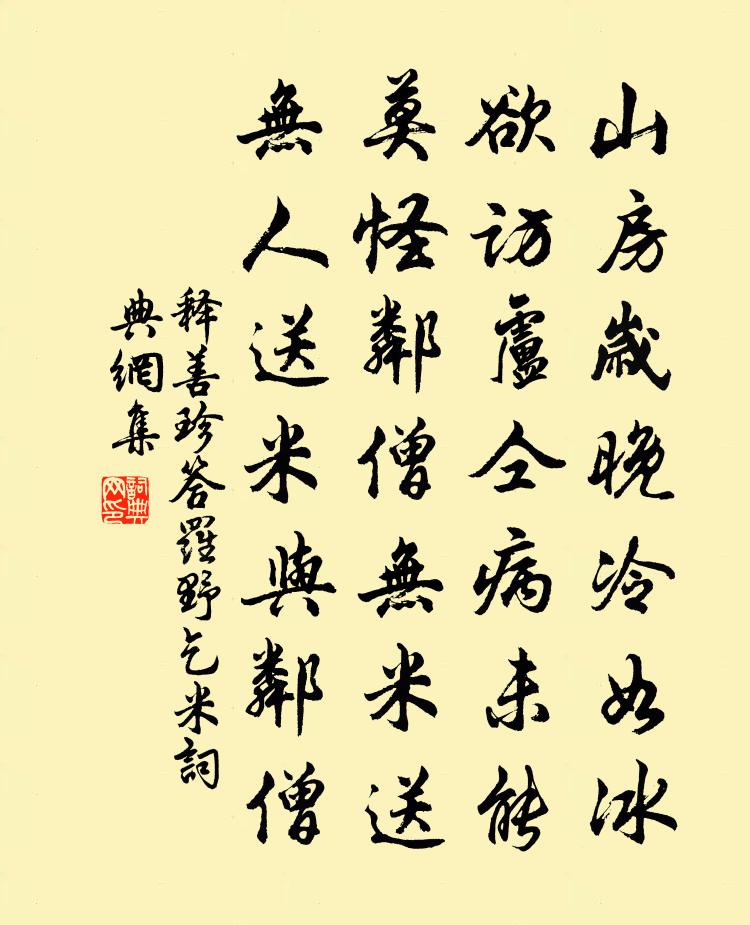 山房歲晚冷如冰
欲訪盧仝病未能
莫怪鄰僧無米送
無人送米與鄰僧
释善珍答羅野乞米詞
典網集
詞典
网印